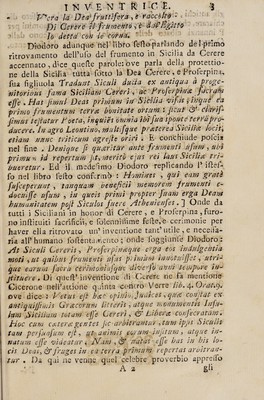 INVENTRICE. 3
Vera la Dea fruttifera, e raccolto
Di Cerere il frumento, e dall'Egitto
Io detta con le corna.
Diodoro adunque nel libro sesto parlando del primo
ritrovamento dell'uso del frumento in Sicilia da Cerere
accennato, dice queste parole: ove parla della protettio-
ne della Sicilia tutta sotto la Dea Cerere, e Proserpina,
sua figliuola Tradunt Siculi ducta ex antiqua à proge-
nitoribus fama Siciliam Cereri, ac Proserpinæ sacram
esse. Hat simul Deas primum in Sicilia visas, inque ea
primo frumentum terræ bonitate ortum: sicut & claris-
simus testatur Poeta, inquiens omnia ibi sua sponte terra pro-
ducere. In agro Leontino, multisque præterea Siciliæ locis,
etiam nunc triticum agreste oriri. E conchiude poscia
nel fine, Denique si quæritur ante frumenti usum, ubi
primum id repertum sit, meritò ejus rei laus Siciliæ tri-
bueretur. Ed il medesimo Diodoro replicando l'istes-
so nel libro sesto conferma: Homines, qui eam gratè
susceperunt, tanquam beneficii memorem frumenti e-
docuisse usum, in queis primi propter suam erga Deas
humanitatem post Siculos fuere Athenienses. Onde da
tutti i Siciliani in honor di Cerere, e Proserpina, furo-
no instituiti sacrificii, e solennissime feste, e cerimonie per
haver ella ritrovato un' inventione tant'utile, e necessa-
ria all'humano sostentamento; onde soggiunge Diodoro:
At Siculi Cereris, Proserpinæque erga eos indulgentia
moti, ut quibus frumenti usus primùm innotuisset, utri-
que earum sacra cerimoniasque diverso anni tempore in-
stituere. Di quest' inventione di Cerere ne fà mentione
Cicerone nell'attione quinta contro Verre lib. 4. Orat. 9.
ove dice: Vetus est hæc opinio, Judices, quæ constat ex
antiquissimis Græcorum literis, atque monumentis Insu-
lam Siciliam totam esse Cereri, & Liberæ consecratam.
Hoc cum cæteræ gentes sic arbitrantur, tum ipsis Siculis
tam persuasum est, ut animis eorum insitum, atque in-
natum esse videatur. Nam, & natas esse has in his lo-
cis Deas, & fruges in ea terra primum repertas arbitran-
tur. Da qui ne venne quel celebre proverbio appresso
A 2 gli